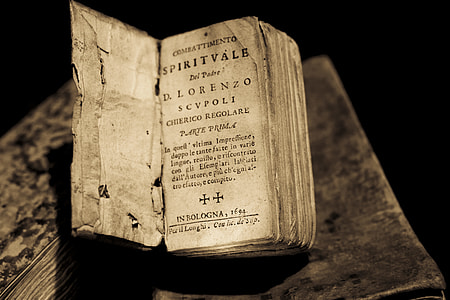 COMBATTIMENTO
SPIRITVALE
Del Padre
D. LORENZO
SCVPOLI
CHIERICO REGOLARE
PARTE PRIMA
In quest' vltima Impressione,
doppo le tante fatte in varie
lingue, reuisto, e riscontrito
con gli Esemplari lasciati
dall'Autore, e più ch'ogni al-
tro esatto, e compito.
IN BOLOGNA, 1694.
Per il Longhi. Con lic. de' Sup.